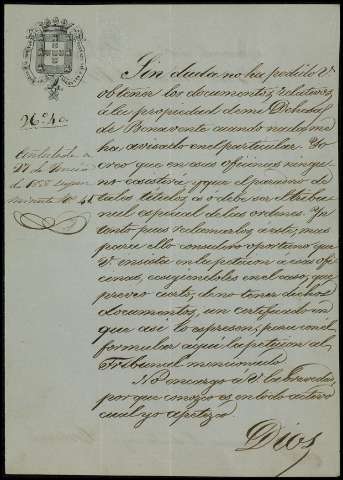 26.º 40
Contestada a
27 de Enero
de 1858 segun
minuta nº 41
Sin duda no ha podido V.
obtener los documentos relativos
á la propiedad de mi Dehesa
de Benavente cuando nada me
ha avisado en el particular. Yo
creo que en esas oficinas ningu
no ecsistirá y que el paradero de
tales titulos a o debe ser el Tribu
nal especial de las ordenes. Yo
tanto para reclamarlos á este, mas
para ello considero oportuno que
V. insista en la peticion á esas ofi
cinas, ecsigiendoles en el caso, que
preveo cierto, de no tener dichos
documentos, un certificado en
que asi lo espresen, para con él
formular aqui la peticion al
Tribunal mencionado.
No encargo á V. la brevedad
porque conozco es en todo activo
cual yo apetezco.
Dios